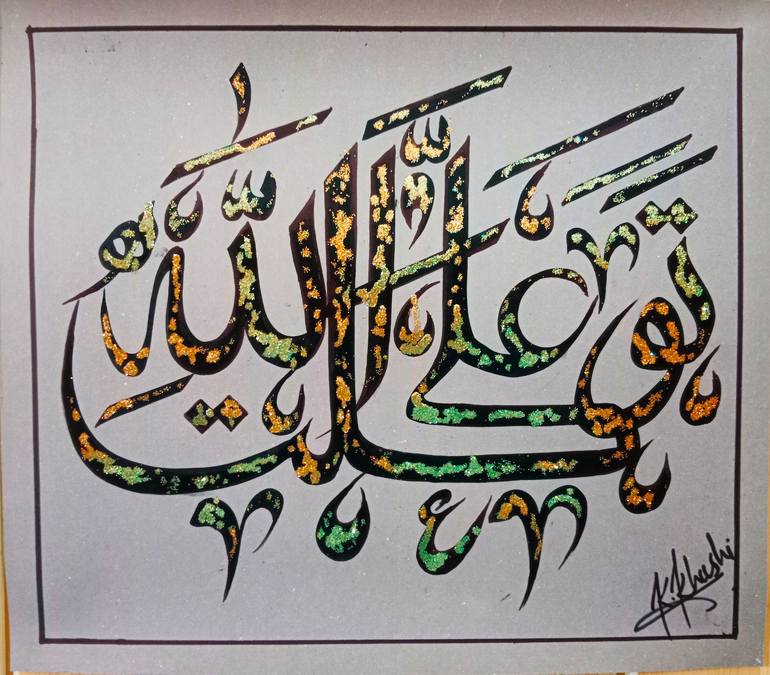 تَوَكَّلْتُ عَلَى اللّٰهِ
K.Khushi